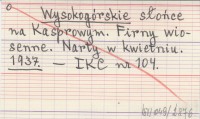 Wysokogórskie słońce
na Kasprowym. Firny wio-
senne. Narty w kwietniu.
1937. — IKC nr 104.